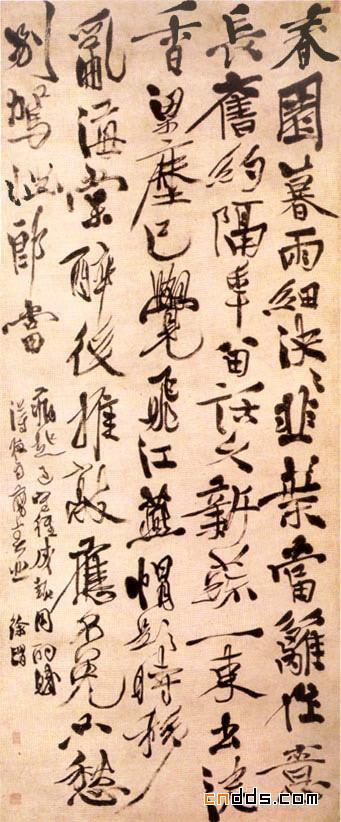 春園暮雨細泱〻韭葉當籬作意
長舊約隔年留話久新蔬一束出泥
香梁塵已覺飛江燕帽影時移
亂海棠醉後推敲應不免只愁
別駕惱郎當
徐渭
cndds.com